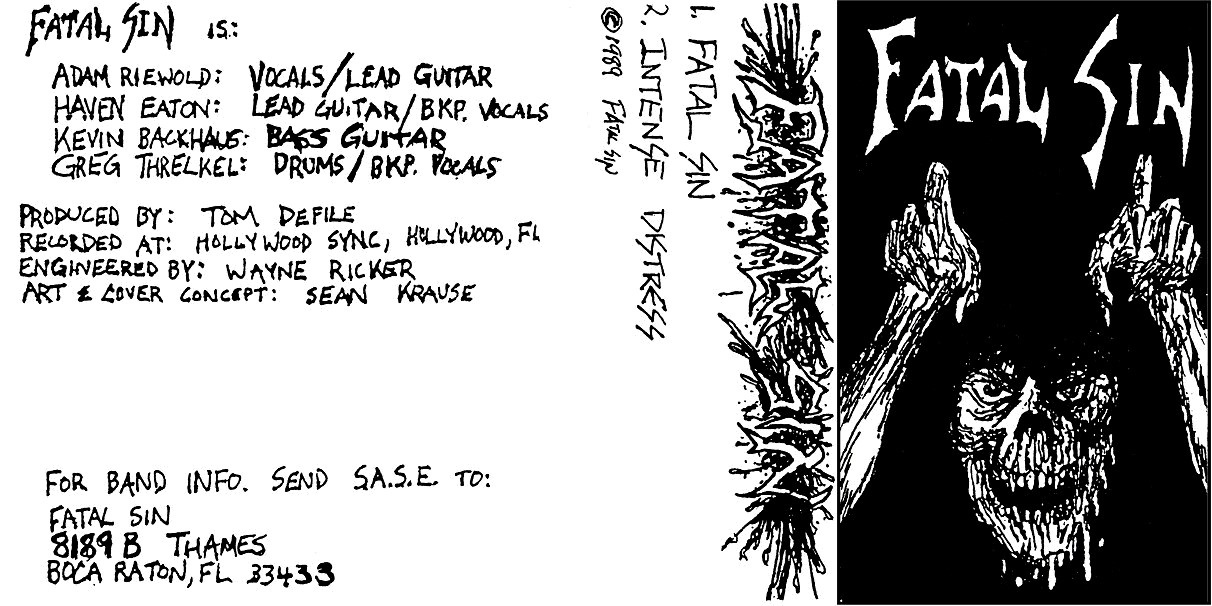 FATAL SIN IS:
ADAM RIEWOLD: VOCALS/LEAD GUITAR
HAVEN EATON: LEAD GUITAR/BKP. VOCALS
KEVIN BACKHAUS: BASS GUITAR
GREG THRELKEL: DRUMS/BKP. VOCALS
PRODUCED BY: TOM DEFILE
RECORDED AT: HOLLYWOOD SYNC, HOLLYWOOD, FL
ENGINEERED BY: WAYNE RICKER
ART & COVER CONCEPT: SEAN KRAUSE
FOR BAND INFO. SEND S.A.S.E. TO:
FATAL SIN
8189 B THAMES
BOCA RATON, FL 33433
1. FATAL SIN
2. INTENSE DISTRESS
©1989 FATAL SIN
FATAL SIN
FATAL SIN